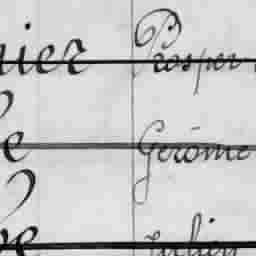 nier Prosper
e Gérôme
e Julien